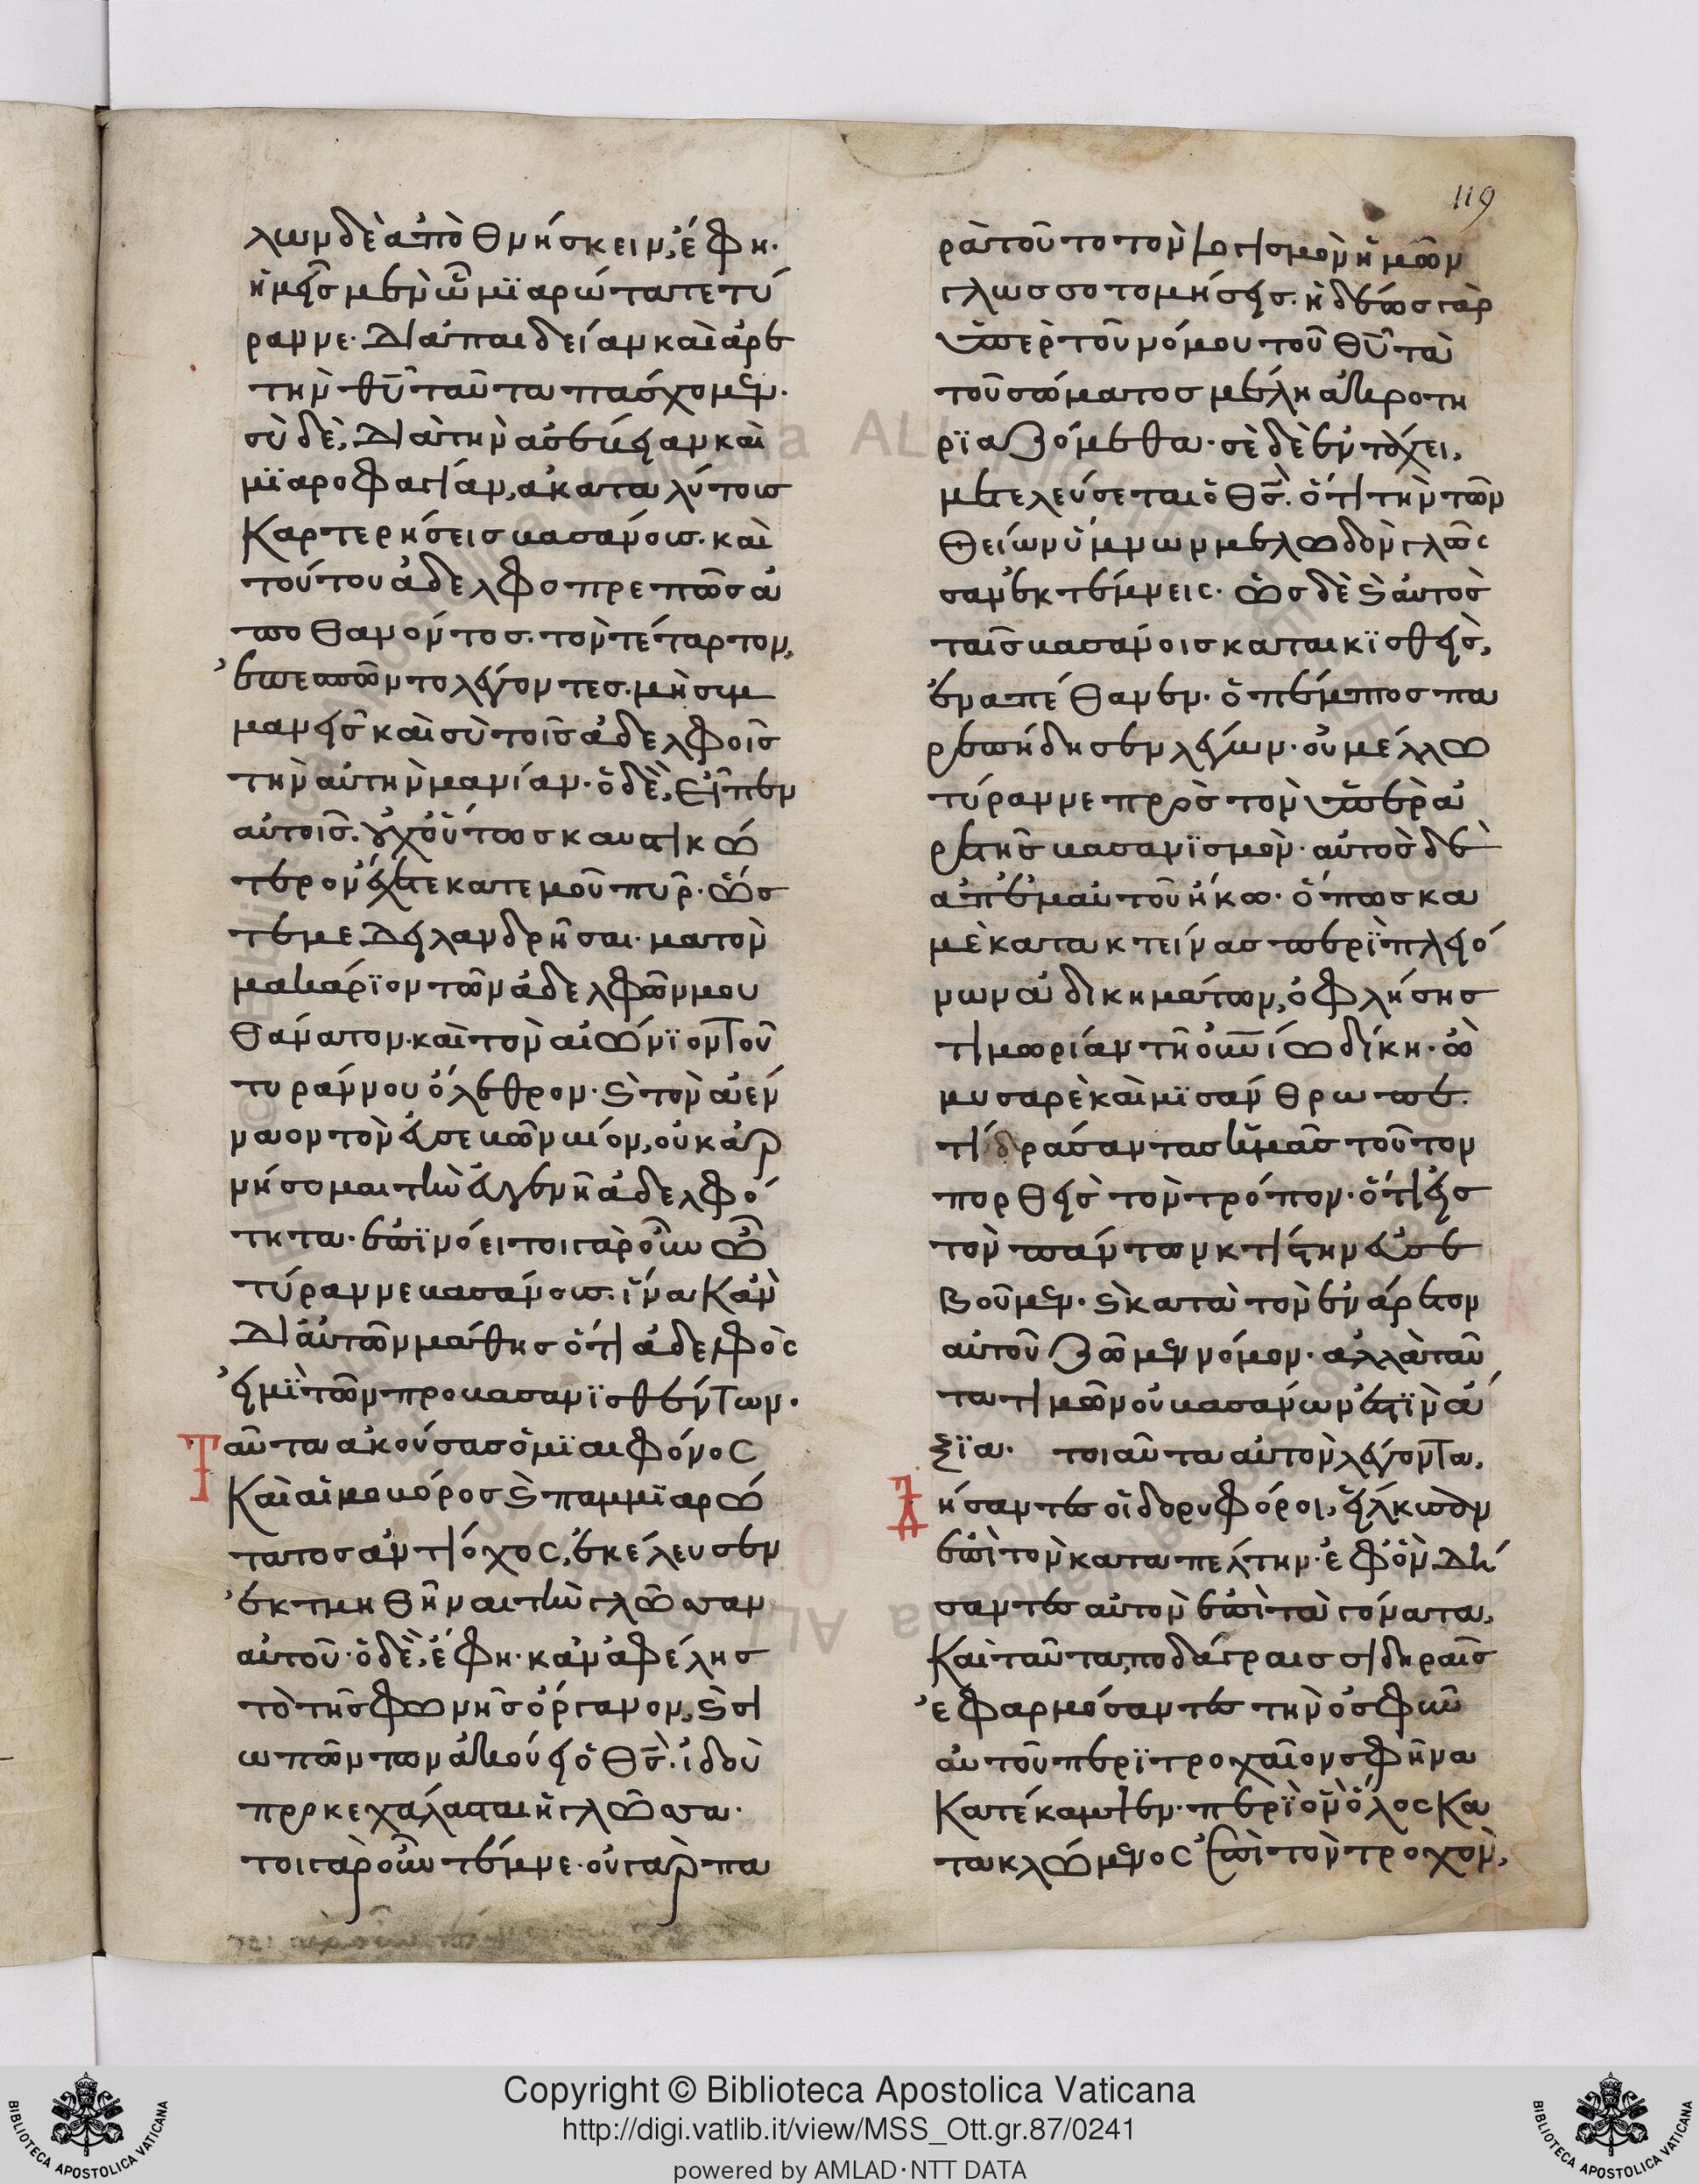 λων δὲ ἀποθνήσκειν, ἔφη·
ἡμεῖς μὲν ὦ μϊαρώτατε τύ
ραννε· διὰ παιδείαν καὶ ἀρε
τὴν θῡ ταῦτα πάσχομεν·
σὺ δὲ, διὰ τὴν ἀσέβειαν καὶ
μϊαροφαγίαν, ἀκαταλύτοις
καρτερήσεις βασάνοις. καὶ
τούτου ἀδελφοπρεπῶς ἀ
ποθανόντος. τὸν τέταρτον,
ἐπεσπῶντο λέγοντες. μὴ σιμ
μανεῖς καὶ σὺ τοῖς ἀδελφοῖς
τὴν αὐτὴν μανίαν· ὁ δὲ, εἶπεν
αὐτοῖς. οὐχ οὕτως καυστικώ
τερον ἔχετε κατ ἐμοῦ πῦρ· ὥς
τέ με δειλανδρῆσαι· μα τὸν
μακάρϊον τῶν ἀδελφῶν μου
θάνατον. καὶ τὸν αἰώνϊον τοῦ
τυράννου ὄλεθρον· καὶ τὸν ἀέν
ναον τὸν εὐσεβῶν βίον, οὐκ ἀρ
νήσομαι τὴν εὐγενῆ ἀδελφό
τητα· ἐπϊνόει τοιγαροῦν ὦ
τύραννε βασάνοις. ἵνα κἀν
δι αὐτῶν μάθῃς ὅτι ἀδελφὸς
εἰμϊ τῶν προβασανϊσθέντων·
Ταῦτα ἀκούσας ὁ μϊαιφόνος
καὶ αἱμοβόρος καὶ παμμϊαρώ
τατος ἀντίοχος, ἐκέλευσεν
ἐκτμηθῆναι τὴν γλῶσσαν
αὐτοῦ· ὁ δὲ, ἔφη· κἀν ἀφέλῃς
τὸ τῆς φωνῆς ὄργανον, καὶ σι
ωπώντων ἀκούει ὁ θς̄. ἰδοὺ
προκεχάλασται ἡ γλῶσσα·
τοιγαροῦν τέμνε· οὐ γὰρ πα
119
ρὰ τοῦτο τὸν λογισμὸν ἡμῶν
γλωσσοτομήσεις. ἡδέως γὰρ
ὑπὲρ τοῦ νόμου τοῦ θῡ τὰ
τοῦ σώματος μέλη ἀκροτη
ρϊαζόμεθα· σὲ δὲ ἐν τάχει,
μετελεύσεται ὁ θς̄. ὅτι τὴν τῶν
θείων ὕμνων μελωδὸν γλῶς
σαν ἐκτέμνεις. ὡς δὲ καὶ αὐτὸς
ταῖς βασάνοις καταικϊσθεὶς,
ἐναπέθανεν· ὁ πέμπτος πα
ρεπήδησεν λέγων· οὐ μέλλω
τύραννε πρὸς τὸν ὑπὲρ ἀ
ρετῆς βασανϊσμὸν· αὐτὸς δὲ
ἀπ ἐμαυτοῦ ἥκω· ὅπως κα
μὲ κατακτείνας περὶ πλειό
νων ἀδικημάτων, ὀφλήσῃς
τιμωρίαν τῇ οὐνίω δίκη· ὦ
μυσαρὲ καὶ μϊσάνθρωπε.
τί δράσαντας ἡμᾶς τοῦτον
πορθεῖς τὸν τρόπον· ὅτι εἰς
τὸν πάντων κτίστην εὐσε
βοῦμεν· καὶ κατὰ τὸν ἐνάρετον
αὐτοῦ ζῶμεν νόμον· ἀλλὰ ταῦ
τα τιμῶν οὐ βασάνων ἐστϊν ἄ
ξϊα· τοιαῦτα αὐτὸν λέγοντα,
Δήσαντες οἱ δορυφόροι, εἵλκυσαν
ἐπὶ τὸν καταπέλτην· ἐφ ὃν δή
σαντες αὐτὸν ἐπὶ τὰ γόνατα,
καὶ ταῦτα ποδάγραις σιδηραῖς
ἐφαρμόσαντες τὴν ὀσφῦν
αὐτοῦ περὶ τροχαῖον σφῆνα
κατέκαμψεν· περὶ ὃν ὅλος κα
τακλώμενος ἐπὶ τὸν τροχὸν,
Copyright © Biblioteca Apostolica Vaticana
http://digi.vatlib.it/view/MSS_Ott.gr.87/0241
powered by AMLAD·NTT DATA
BIBLIOTECA APOSTOLICA VATICANA
BIBLIOTECA APOSTOLICA VATICANA